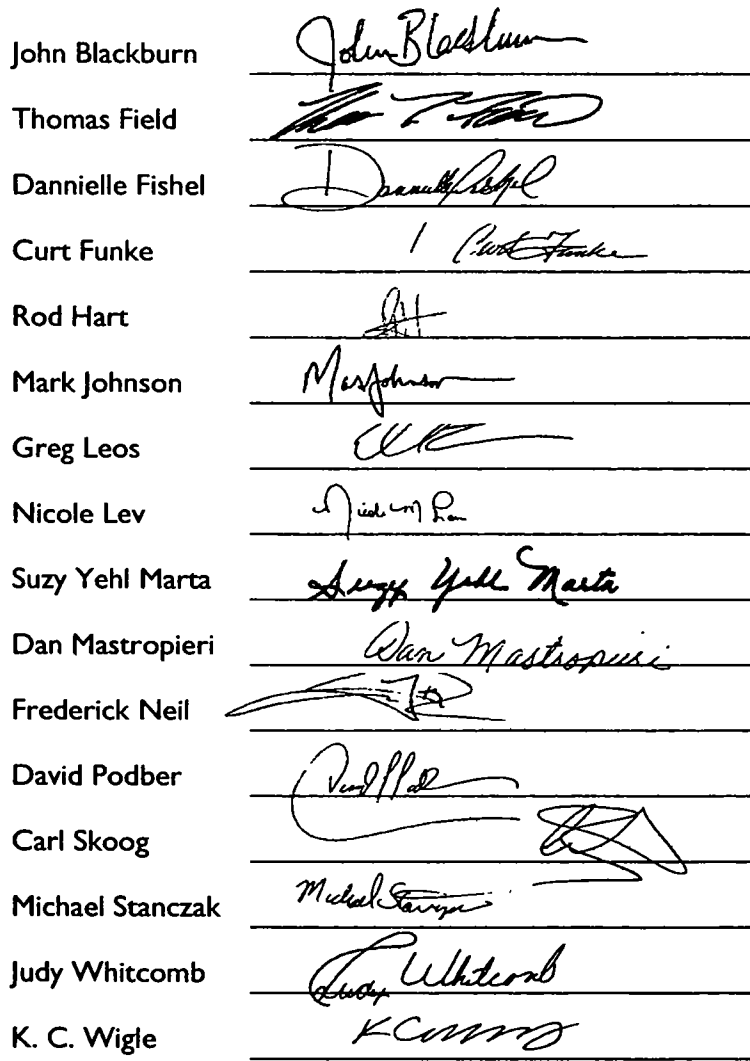 John Blackburn John Blackburn
Thomas Field
Dannielle Fishel Dannielle Fishel
Curt Funke Curt Funke
Rod Hart RH
Mark Johnson Mark Johnson
Greg Leos
Nicole Lev
Suzy Yehl Marta Suzy Yehl Marta
Dan Mastropieri Dan Mastropieri
Frederick Neil
David Podber
Carl Skoog
Michael Stanczak Michael
Judy Whitcomb Judy Whitcomb
K. C. Wigle K C